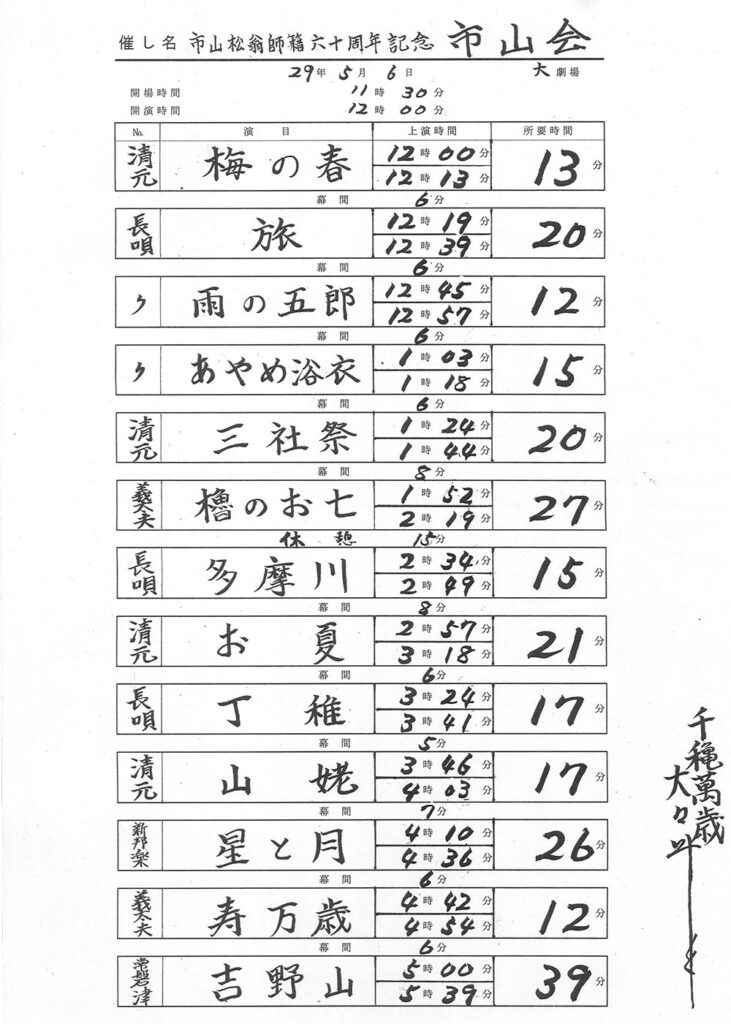 催し名 市山松翁師籍六十周年記念 市山会
29年 5月 6日 大劇場
開場時間 11時 30分
開演時間 12時 00分
No. 演目 上演時間 所要時間
清元 梅の春 12時 00分 12時 13分 13分
幕間 6分
長唄 旅 12時 19分 12時 39分 20分
幕間 6分
〃 雨の五郎 12時 45分 12時 57分 12分
幕間 6分
〃 あやめ浴衣 1時 03分 1時 18分 15分
幕間 6分
清元 三社祭 1時 24分 1時 44分 20分
幕間 8分
義太夫 櫓のお七 1時 52分 2時 19分 27分
休憩 15分
長唄 多摩川 2時 34分 2時 49分 15分
幕間 8分
清元 お夏 2時 57分 3時 18分 21分
幕間 6分
長唄 丁稚 3時 24分 3時 41分 17分
幕間 5分
清元 山姥 3時 46分 4時 03分 17分
幕間 7分
新邦楽 星と月 4時 10分 4時 36分 26分
幕間 6分
義太夫 寿万歳 4時 42分 4時 54分 12分
幕間 6分
常磐津 吉野山 5時 00分 5時 39分 39分
千穐萬歳
大々叶